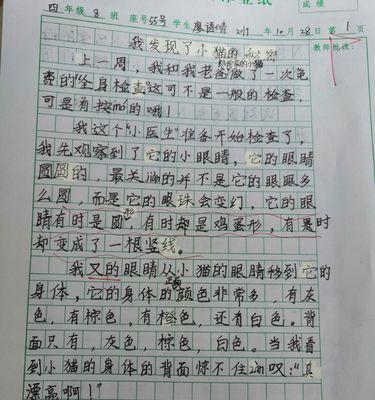 四年级8班 座号55号 学生廖语晴 2019年10月28日 第1页
成绩
教师批改:
我发现了小猫的秘密
上一周,我和我老爸做了一次免
给我家的小猫
费的“全身检查”这可不是一般的检查,
可是为按mó的哦!
我这个“小医生”准备开始检查了,
我先观察到了它的小眼睛,它的眼睛
圆圆的,最关jiàn的并不是它的眼眼多
么圆,而是它的眼珠会变幻,它的眼
睛有时是圆形,有时都是鸡蛋形,有是时
却变成了一根竖线。
我又的眼睛从小猫的眼睛移到它的
身体,它的身体的颜色非常多,有灰
色,有棕色,有橙色,还有白色。背
面只有,灰色,棕色,白色。当我看
到小猫的身体的背面惊不住zàn叹:“真
漂亮啊!”